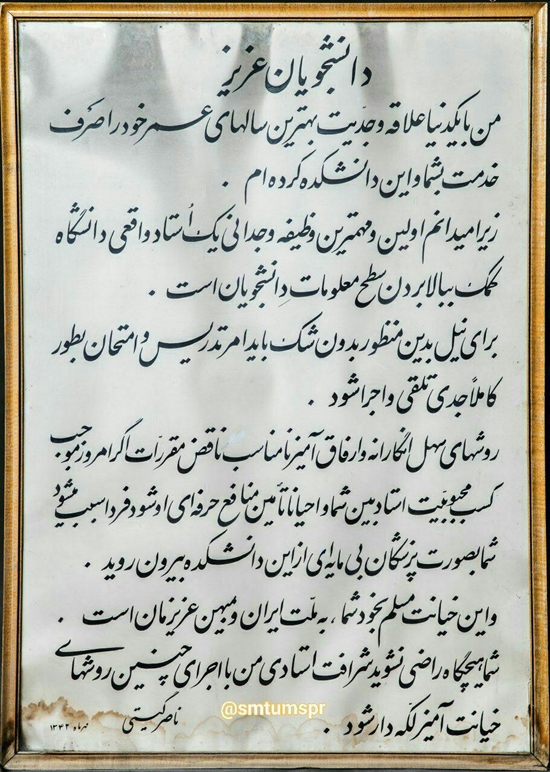 دانشجویان عزیز
من با یکدنیا علاقه وجدّیت بهترین سالهای عمر خود را صرف
خدمت بشما و این دانشکده کرده ام .
زیرا میدانم اولین و مهمترین وظیفه وجدانی یک اُستاد واقعی دانشگاه
کمک ببالا بردن سطح معلومات دانشجویان است .
برای نیل بدین منظور بدون شک باید امر تدریس و امتحان بطور
کاملاً جدی تلقی و اجرا شود .
روشهای سهل انگارانه و ارفاق آمیز نامناسب ناقض مقرّرات اگر امروز موجب
کسب محبوبیّت استاد بین شما و احیاناً تأمین منافع حرفه ای او شود فردا سبب میشود
شما بصورت پزشکان بی مایه ای از این دانشکده بیرون روید .
و این خیانت مسلم بخود شما ، به ملّت ایران و میهن عزیزمان است .
شما هیچگاه راضی نشوید شرافت استادی من با اجرای چنین روشهای
خیانت آمیز لکه دار شود .
@smtumspr
ناصر گیتی
مهرماه ۱۳۴۲